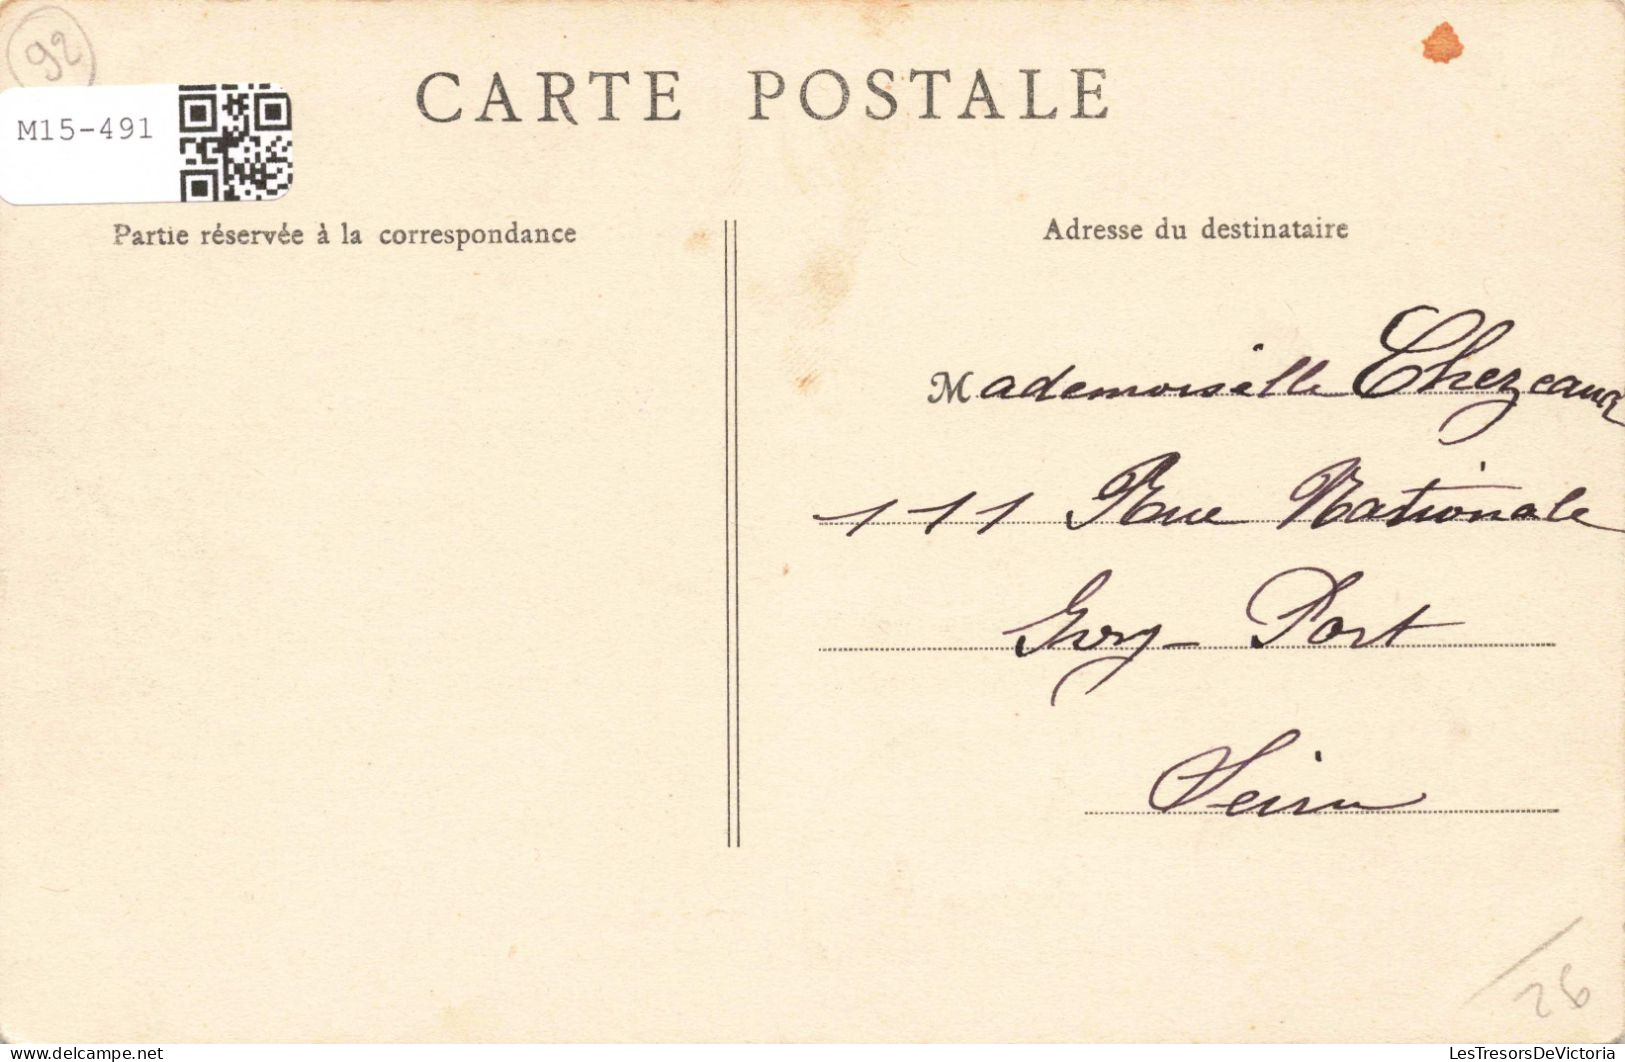 92
CARTE POSTALE
M15-491
Partie réservée à la correspondance
Adresse du destinataire
Mademoiselle Chezeaux
111 Rue Nationale
Ivry-Port
Seine
26
LesTresorsDeVictoria